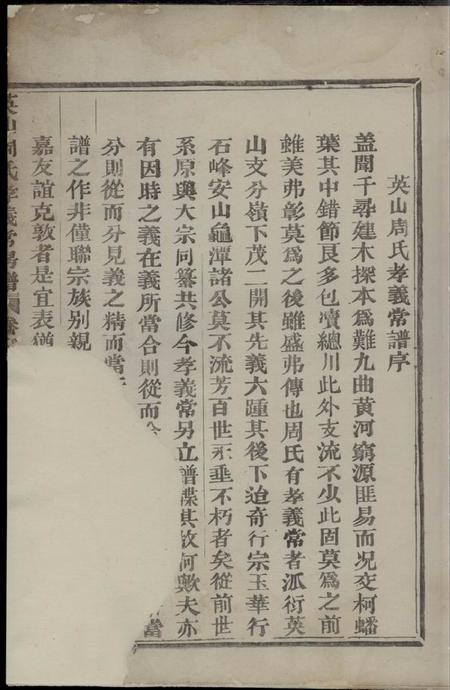 英山周氏孝義常譜序
蓋聞千尋建木探本爲難九曲黃河窮源匪易而况交柯蟠
葉其中錯節良多包瀆總川此外支流不少此固莫爲之前
雖美弗彰莫爲之後雖盛弗傳也周氏有孝義常者派衍英
山支分嶺下茂二開其先義六踵其後下迨奇行宗玉華行
石峰安山龜潭諸公莫不流芳百世永垂不朽者矣從前世
系原與大宗同纂共修今孝義常另立譜牒其故何歟夫亦
有因時之義在義所當合則從而合 當
分則從而分見義之精而當
譜之作非僅聯宗族别親
嘉友誼克敦者是宜表
英山周氏孝義常房譜